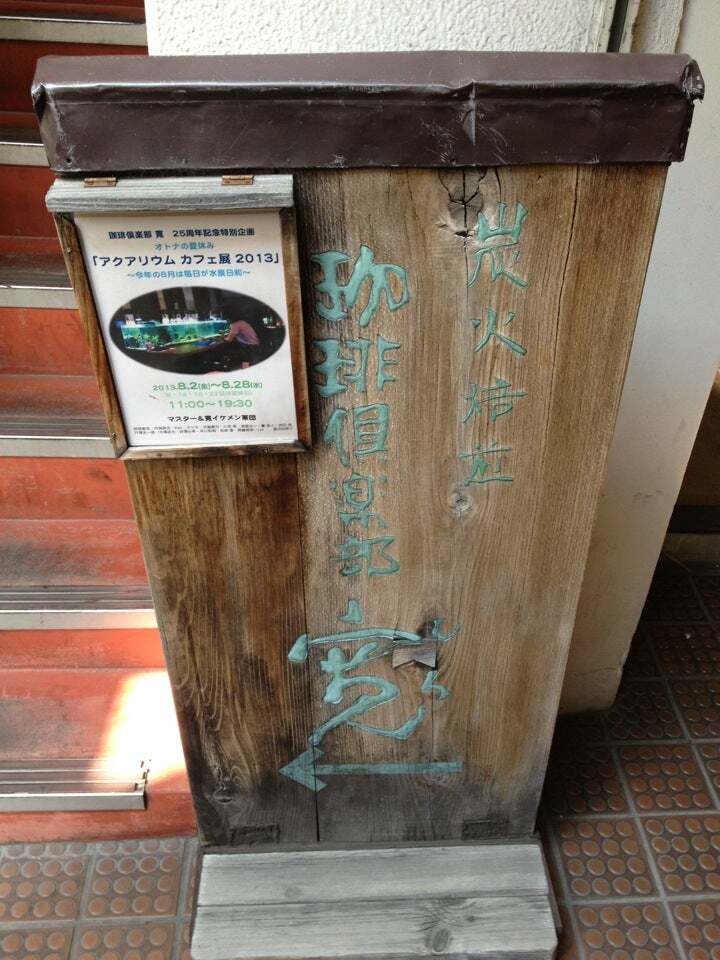 炭火焙煎
珈琲倶楽部
寛
珈琲倶楽部 寛 25周年記念特別企画
オトナの夏休み
「アクアリウム カフェ展 2013」
～今年の8月は毎日が水族日和～
2013.8.2(金)～8.28(水)
11:00～19:30
マスター&寛イケメン軍団